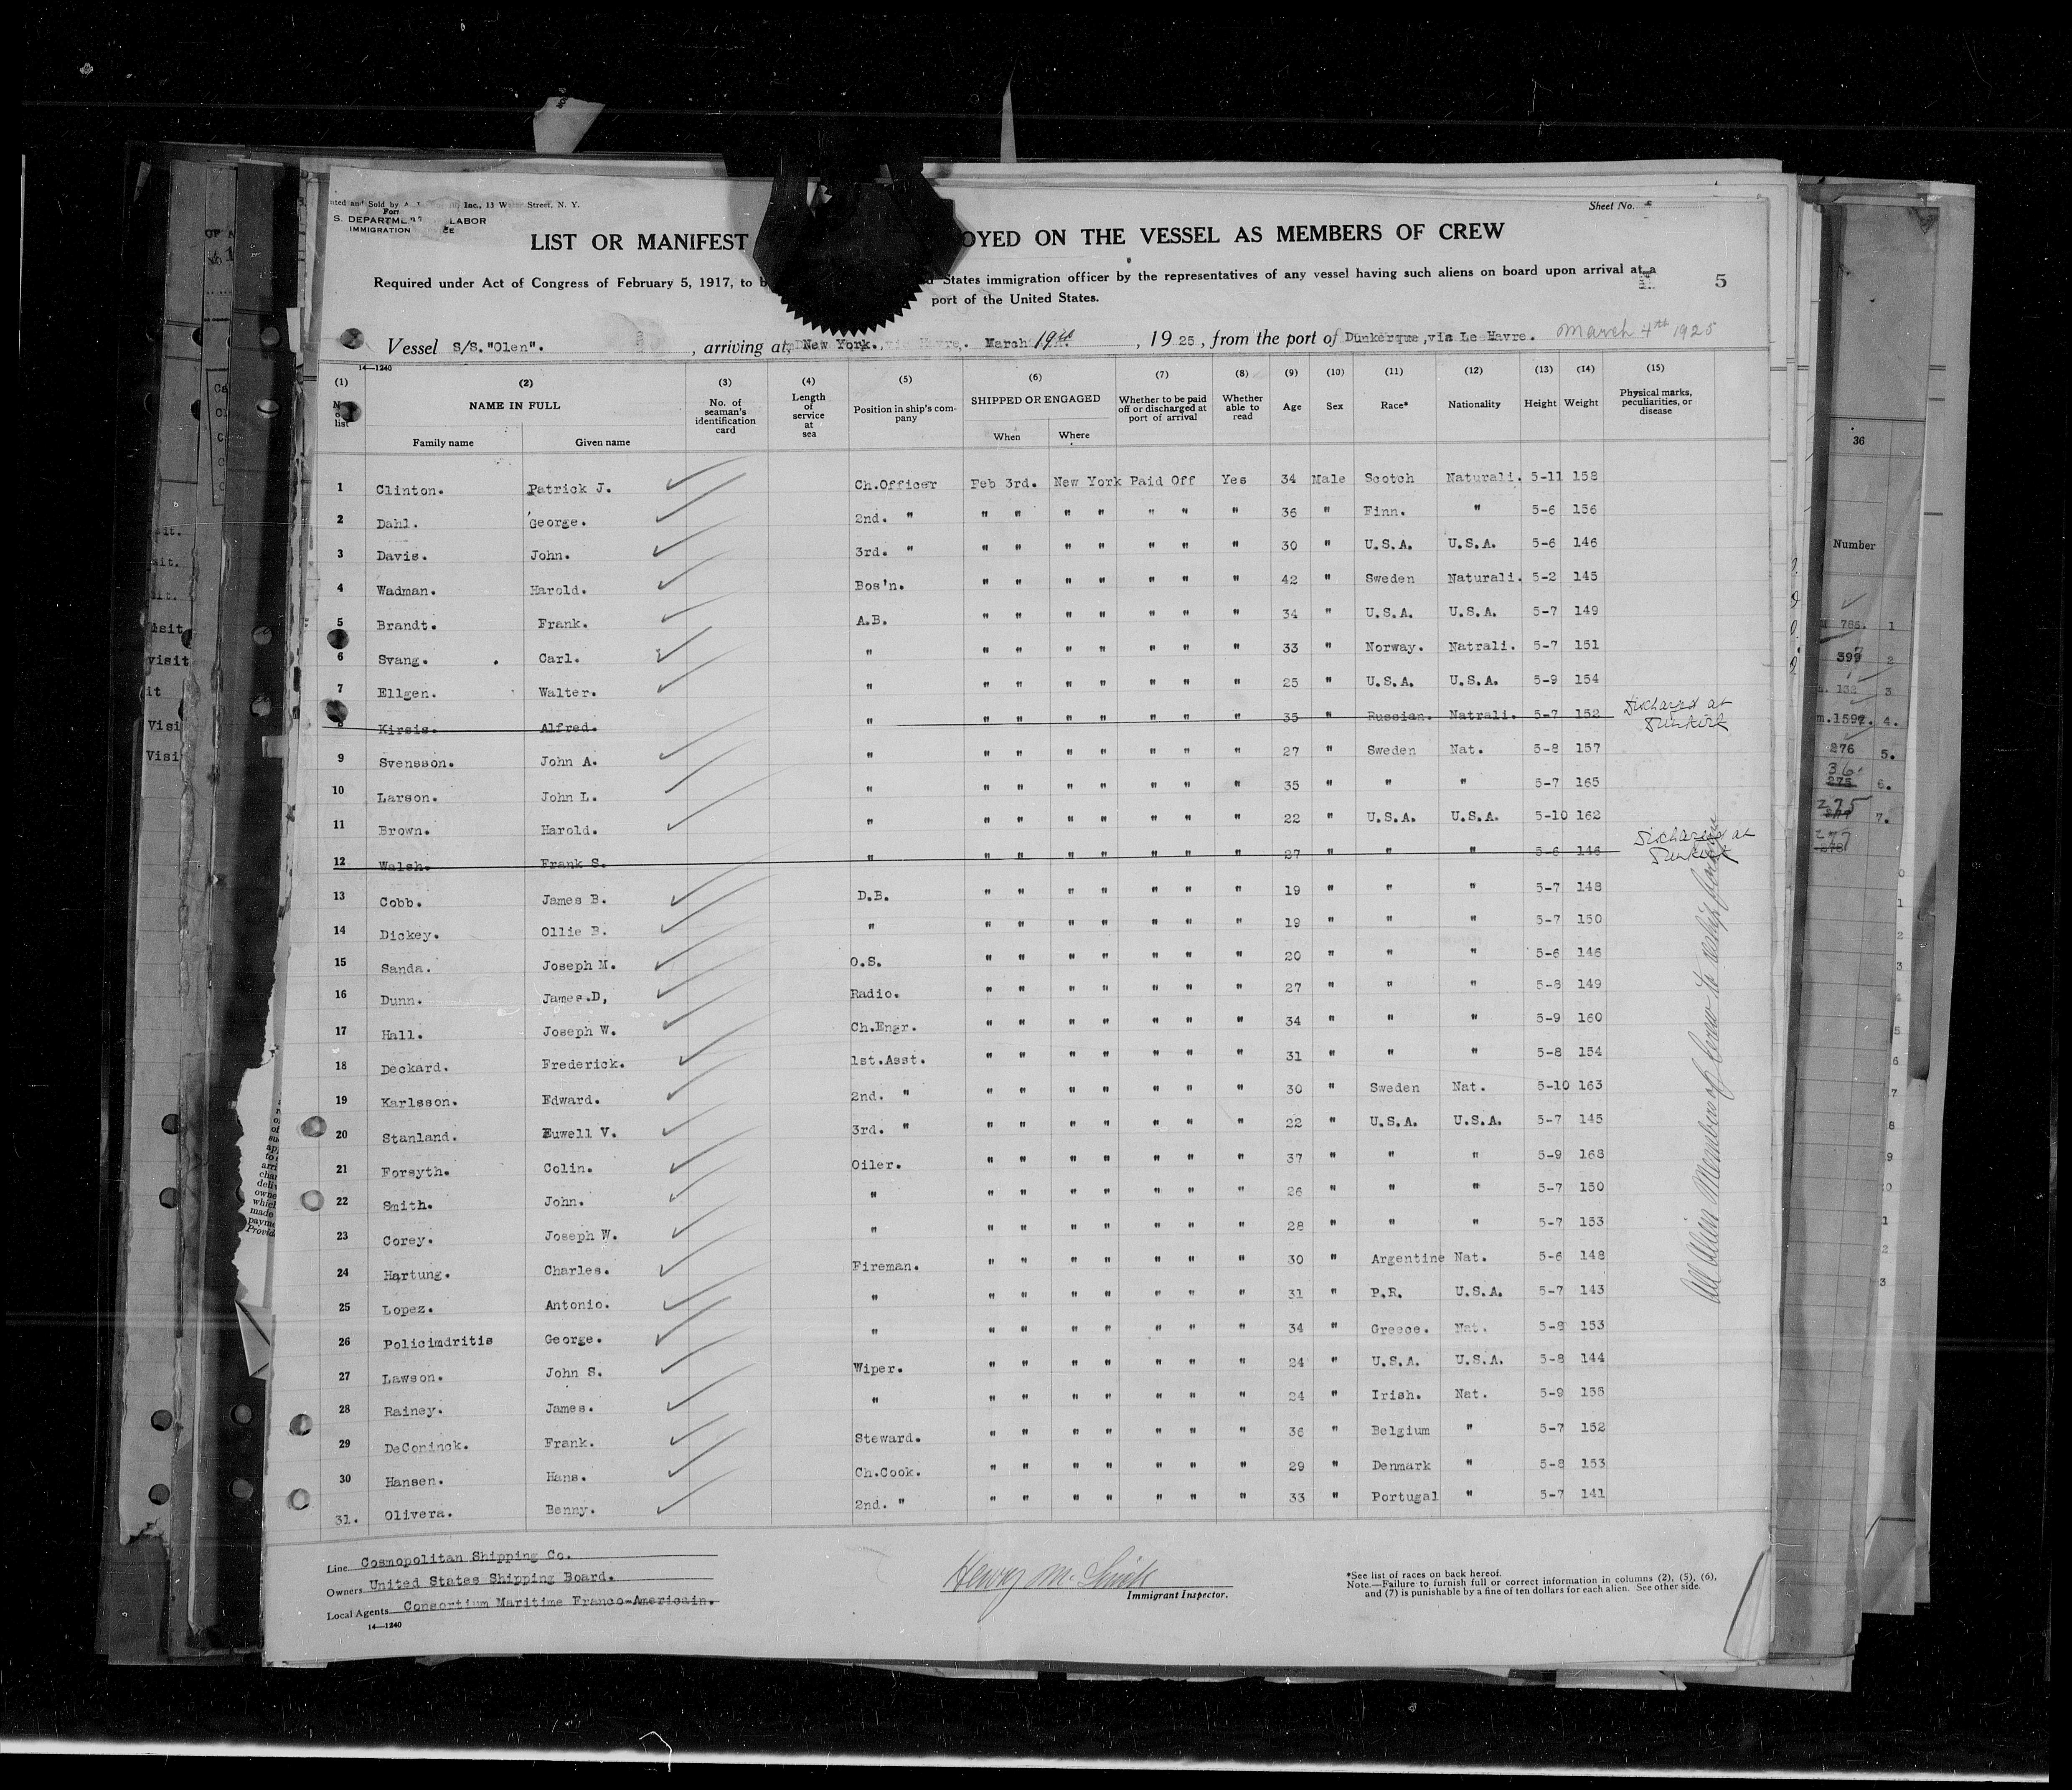 Inc., 13 Water Street, N. Y.
Sheet No.
S. DEPARTME LABOR
IMMIGRATION
LIST OR MANIFEST OYED ON THE VESSEL AS MEMBERS OF CREW
Required under Act of Congress of February 5, 1917, to b States immigration officer by the representatives of any vessel having such aliens on board upon arrival at a
port of the United States.
5
Vessel S/S."Olen". , arriving at New York. March 19th , 1925, from the port of Dunkerque, via Le Havre. March 4th 1925
14—1240
(1) (2) (3) (4) (5) (6) (7) (8) (9) (10) (11) (12) (13) (14) (15)
list NAME IN FULL No. of seaman's identification card Length of service at sea Position in ship's company SHIPPED OR ENGAGED Whether to be paid off or discharged at port of arrival Whether able to read Age Sex Race* Nationality Height Weight Physical marks, peculiarities, or disease
Family name Given name When Where
1 Clinton. Patrick J. Ch.Officer Feb 3rd. New York Paid Off Yes 34 Male Scotch Naturali. 5-11 158
2 Dahl. George. 2nd. " " " " " " " " 36 " Finn. " 5-6 156
3 Davis. John. 3rd. " " " " " " " " 30 " U.S.A. U.S.A. 5-6 146
4 Wadman. Harold. Bos'n. " " " " " " " 42 " Sweden Naturali. 5-2 145
5 Brandt. Frank. A.B. " " " " " " " 34 " U.S.A. U.S.A. 5-7 149
6 Svang. Carl. " " " " " " " " 33 " Norway. Natrali. 5-7 151
7 Ellgen. Walter. " " " " " " " " 25 " U.S.A. U.S.A. 5-9 154
8 Kirsis. Alfred. " " " " " " " " 35 " Russian. Natrali. 5-7 152 Discharged at Dunkirk
9 Svensson. John A. " " " " " " " " 27 " Sweden Nat. 5-8 157
10 Larson. John L. " " " " " " " " 35 " " " 5-7 165
11 Brown. Harold. " " " " " " " " 22 " U.S.A. U.S.A. 5-10 162
12 Walsh. Frank S. " " " " " " " " 27 " " " 5-6 146 Discharged at Dunkirk
13 Cobb. James B. D.B. " " " " " " " 19 " " " 5-7 148
14 Dickey. Ollie B. " " " " " " " " 19 " " " 5-7 150
15 Sanda. Joseph M. O.S. " " " " " " " 20 " " " 5-6 146
16 Dunn. James.D, Radio. " " " " " " " 27 " " " 5-8 149
17 Hall. Joseph W. Ch.Engr. " " " " " " " 34 " " " 5-9 160
18 Deckard. Frederick. 1st.Asst. " " " " " " " 31 " " " 5-8 154
19 Karlsson. Edward. 2nd. " " " " " " " " 30 " Sweden Nat. 5-10 163
20 Stanland. Euwell V. 3rd. " " " " " " " " 22 " U.S.A. U.S.A. 5-7 145
21 Forsyth. Colin. Oiler. " " " " " " " 37 " " " 5-9 168
22 Smith. John. " " " " " " " " 26 " " " 5-7 150
23 Corey. Joseph W. " " " " " " " " 28 " " " 5-7 153
24 Hartung. Charles. Fireman. " " " " " " " 30 " Argentine Nat. 5-6 148
25 Lopez. Antonio. " " " " " " " " 31 " P.R. U.S.A. 5-7 143
26 Policimdritis George. " " " " " " " " 34 " Greece. Nat. 5-8 153
27 Lawson. John S. Wiper. " " " " " " " 24 " U.S.A. U.S.A. 5-8 144
28 Rainey. James. " " " " " " " " 24 " Irish. Nat. 5-9 155
29 DeConinck. Frank. Steward. " " " " " " " 36 " Belgium " 5-7 152
30 Hansen. Hans. Ch.Cook. " " " " " " " 29 " Denmark " 5-8 153
31. Olivera. Benny. 2nd. " " " " " " " " 33 " Portugal " 5-7 141
All Alien Members of Crew to
Line Cosmopolitan Shipping Co.
Owners United States Shipping Board.
Local Agents Consortium Maritime Franco-Americain.
14—1240
Immigrant Inspector.
*See list of races on back hereof.
Note.—Failure to furnish full or correct information in columns (2), (5), (6),
and (7) is punishable by a fine of ten dollars for each alien. See other side.
36
Number